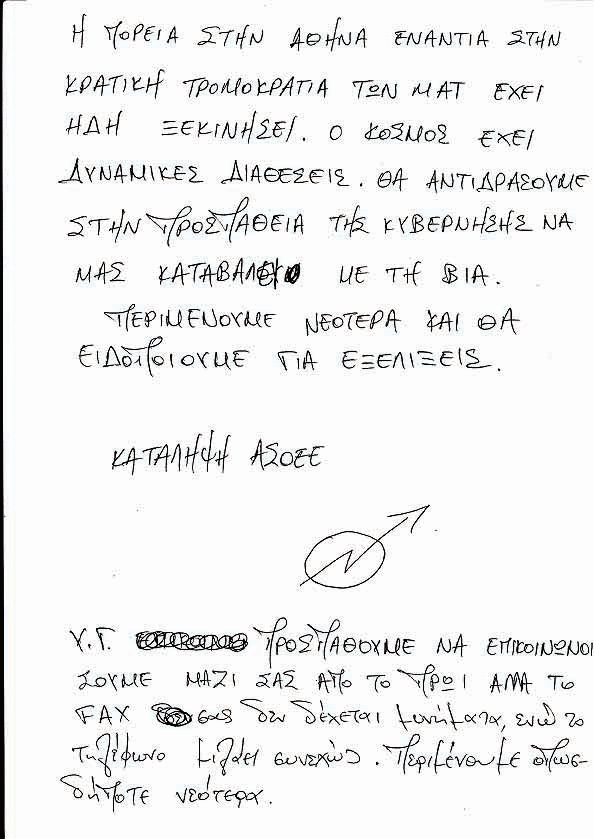 Η ΠΟΡΕΙΑ ΣΤΗΝ ΑΘΗΝΑ ΕΝΑΝΤΙΑ ΣΤΗΝ
ΚΡΑΤΙΚΗ ΤΡΟΜΟΚΡΑΤΙΑ ΤΩΝ ΜΑΤ ΕΧΕΙ
ΗΔΗ ΞΕΚΙΝΗΣΕΙ. Ο ΚΟΣΜΟΣ ΕΧΕΙ
ΔΥΝΑΜΙΚΕΣ ΔΙΑΘΕΣΕΙΣ. ΘΑ ΑΝΤΙΔΡΑΣΟΥΜΕ
ΣΤΗΝ ΠΡΟΣΠΑΘΕΙΑ ΤΗΣ ΚΥΒΕΡΝΗΣΗΣ ΝΑ
ΜΑΣ ΜΕ ΤΗ ΒΙΑ.
ΠΕΡΙΜΕΝΟΥΜΕ ΝΕΟΤΕΡΑ ΚΑΙ ΘΑ
ΕΙΔΟΠΟΙΟΥΜΕ ΓΙΑ ΕΞΕΛΙΞΕΙΣ.
ΚΑΤΑΛΗΨΗ ΑΣΟΕΕ
Υ.Γ. ΠΡΟΣΠΑΘΟΥΜΕ ΝΑ ΕΠΙΚΟΙΝΩΝΗ
ΣΟΥΜΕ ΜΑΖΙ ΣΑΣ ΑΠΟ ΤΟ ΠΡΩΙ ΑΛΛΑ ΤΟ
FAX σας δεν δέχεται μηνύματα, ενώ το
τηλέφωνο μιλάει συνεχώς. Περιμένουμε οπωσ-
δήποτε νεότερα.